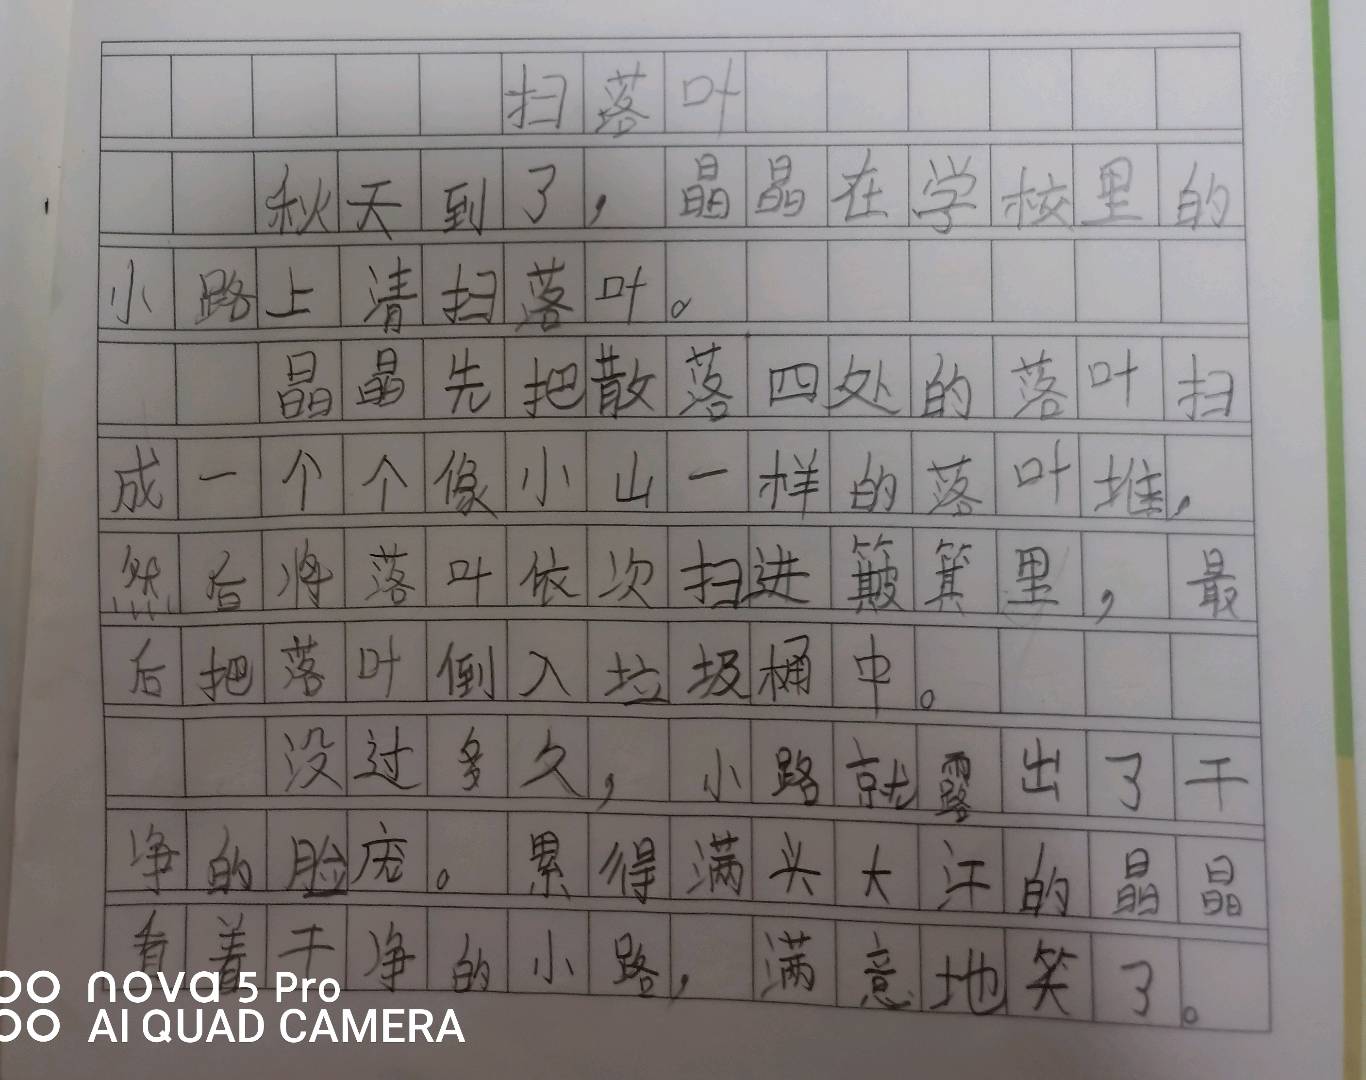 扫落叶
秋天到了，晶晶在学校里的
小路上清扫落叶。
晶晶先把散落四处的落叶扫
成一个个像小山一样的落叶堆，
然后将落叶依次扫进簸箕里，最
后把落叶倒入垃圾桶中。
没过多久，小路就露出了干
净的脸庞。累得满头大汗的晶晶
看着干净的小路，满意地笑了。
nova 5 Pro
AI QUAD CAMERA